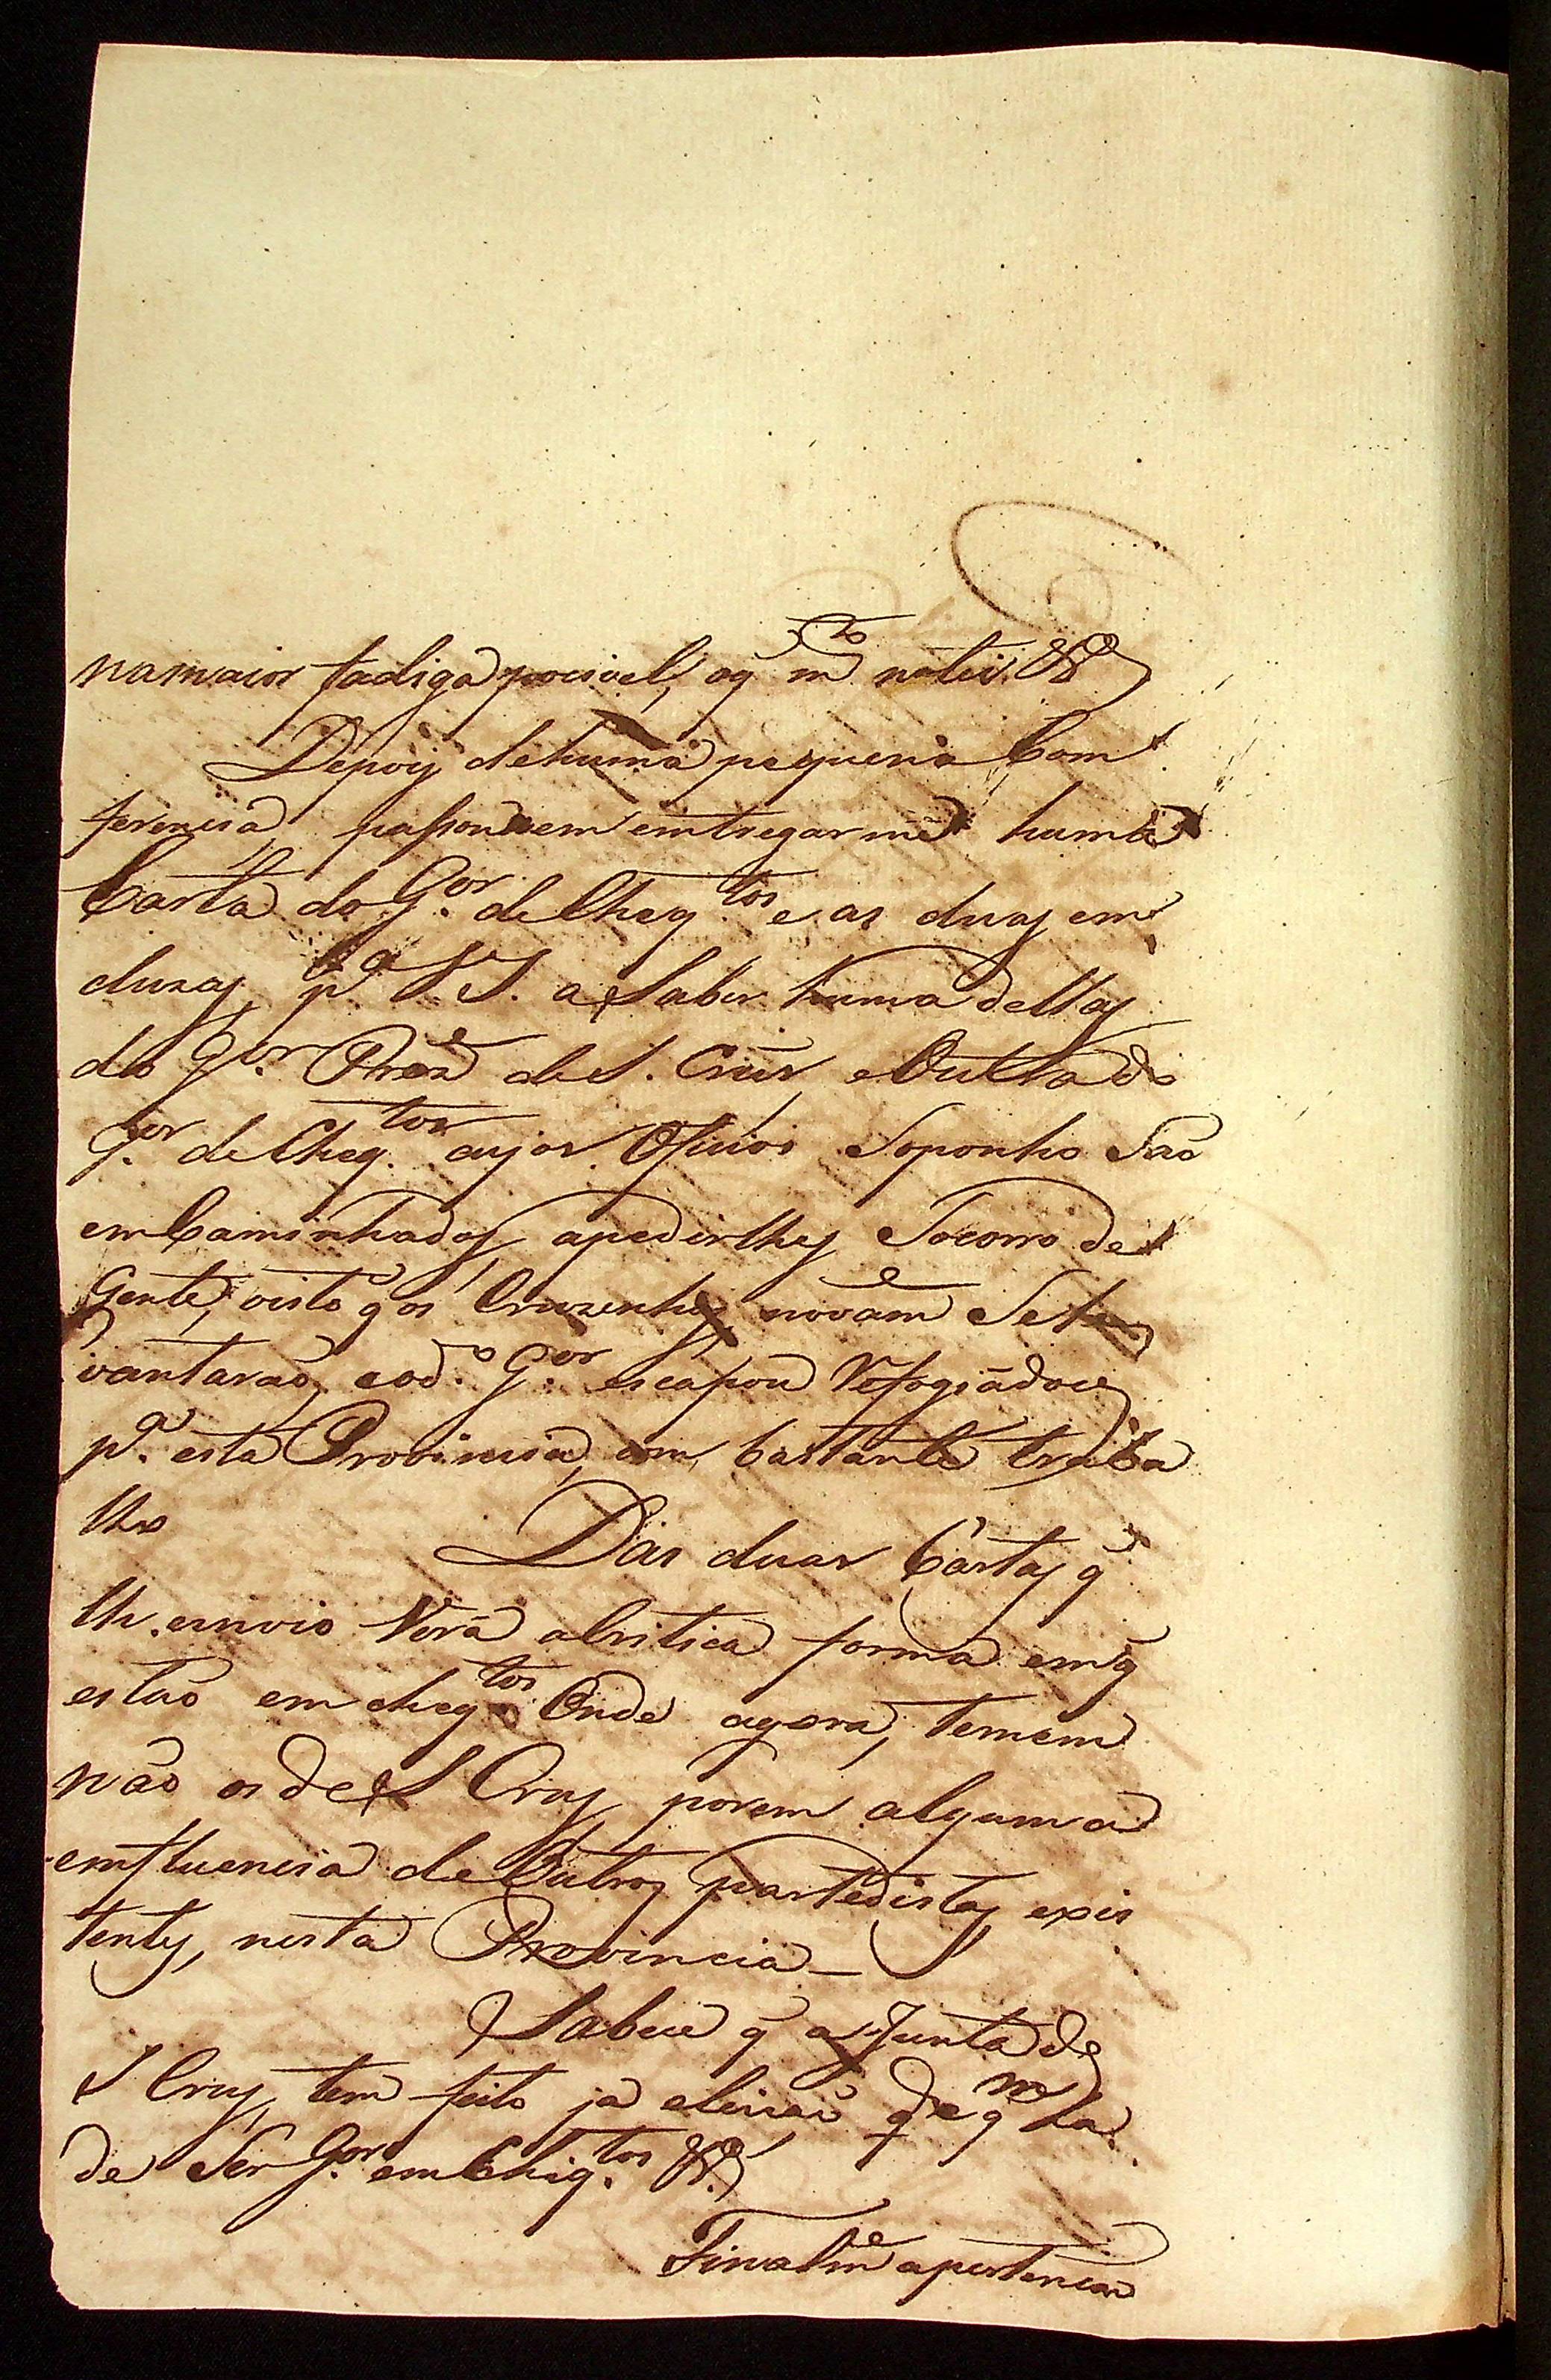 na maior fadiga pocivel, oq̃ mto notei &&
Depois dehuma pequena Com
ferencia, passou aem emtregarme huma
Carta do Gor. de Cheqtos e as duas em
cluzas pa. V S. a Saber huma dellas
do Gor. Preze de S. Crus eOutra do
Gor. de Cheq.tos cujos Oficios Soponho São
emCaminhados apedirlhes Socorro de
Gente, visto q̃ os Cruzenhos novame Sele
vantarão, eod.o Gor. escapou Refogiadoce
pa. esta Provincia, com bastante traba
lho Das duas Cartas q̃
lhe emvio Verá aCritica forma em q̃
estão em cheq.tos Onde agora, temem
não os de S Crus, porem alguma
emfluencia de Outros partedistas, exis
tentes, nesta Provincia _
Sabece q̃ a Junta de
S Crus, tem feito ja eleição de qm ha
de Ser Gor. em Chiq.tos &&
Finalme apertencão